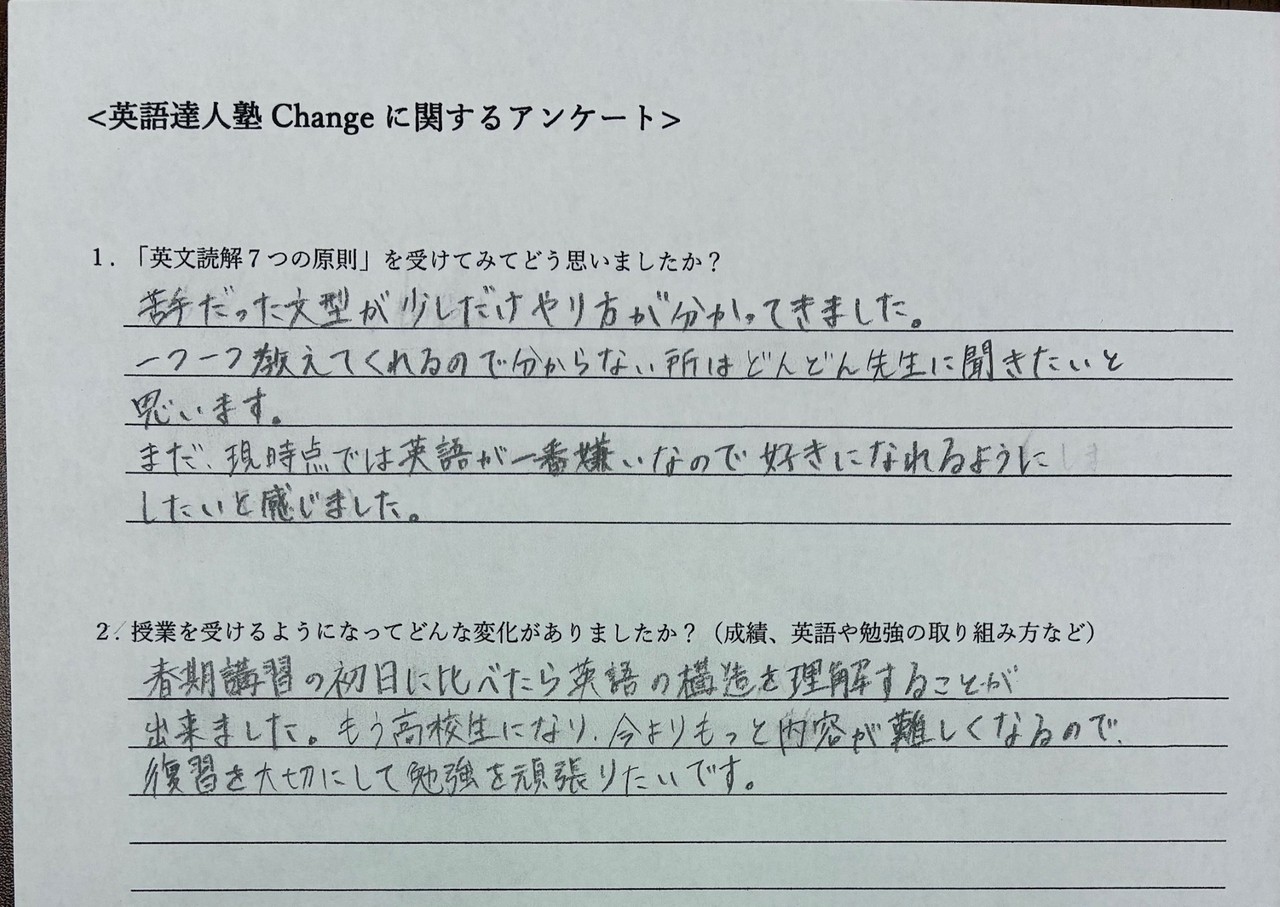 <英語達人塾 Change に関するアンケート>
１．「英文読解７つの原則」を受けてみてどう思いましたか？
苦手だった文型が少しだけやり方が分かってきました。
一つ一つ教えてくれるので分からない所はどんどん先生に聞きたいと
思います。
まだ、現時点では英語が一番嫌いなので好きになれるように
したいと感じました。
２．授業を受けるようになってどんな変化がありましたか？（成績、英語や勉強の取り組み方など）
春期講習の初日に比べたら英語の構造を理解することが
出来ました。もう高校生になり、今よりもっと内容が難しくなるので、
復習を大切にして勉強を頑張りたいです。